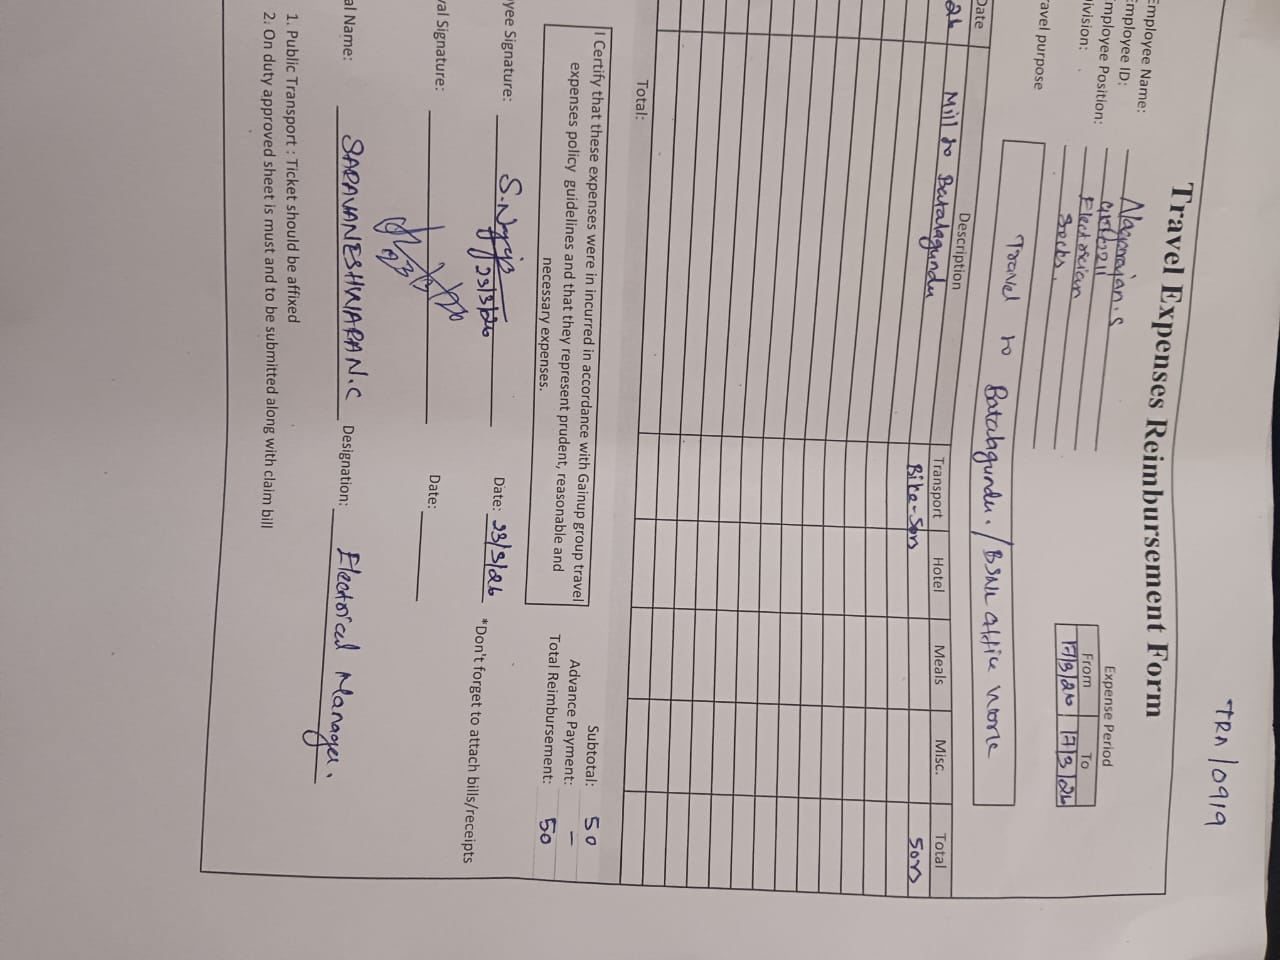 TRA/0919
Travel Expenses Reimbursement Form
Employee Name: S
Employee ID:
Employee Position: Electorician
ivision: Socks.
ravel purpose Travel to Batalagundu. / BSNL office work
Expense Period
From To
17/3/26 17/3/26
Date Description Transport Hotel Meals Misc. Total
26 Mill to Batalagundu Bike-50rs 50rs
Total:
I Certify that these expenses were in incurred in accordance with Gainup group travel
expenses policy guidelines and that they represent prudent, reasonable and
necessary expenses.
Subtotal: 50
Advance Payment: –
Total Reimbursement: 50
yee Signature: 23/3/26 Date: 23/3/26 *Don't forget to attach bills/receipts
val Signature: Date:
al Name: SARAVANESHWARAN.C Designation: Electrical Manager.
1. Public Transport : Ticket should be affixed
2. On duty approved sheet is must and to be submitted along with claim bill